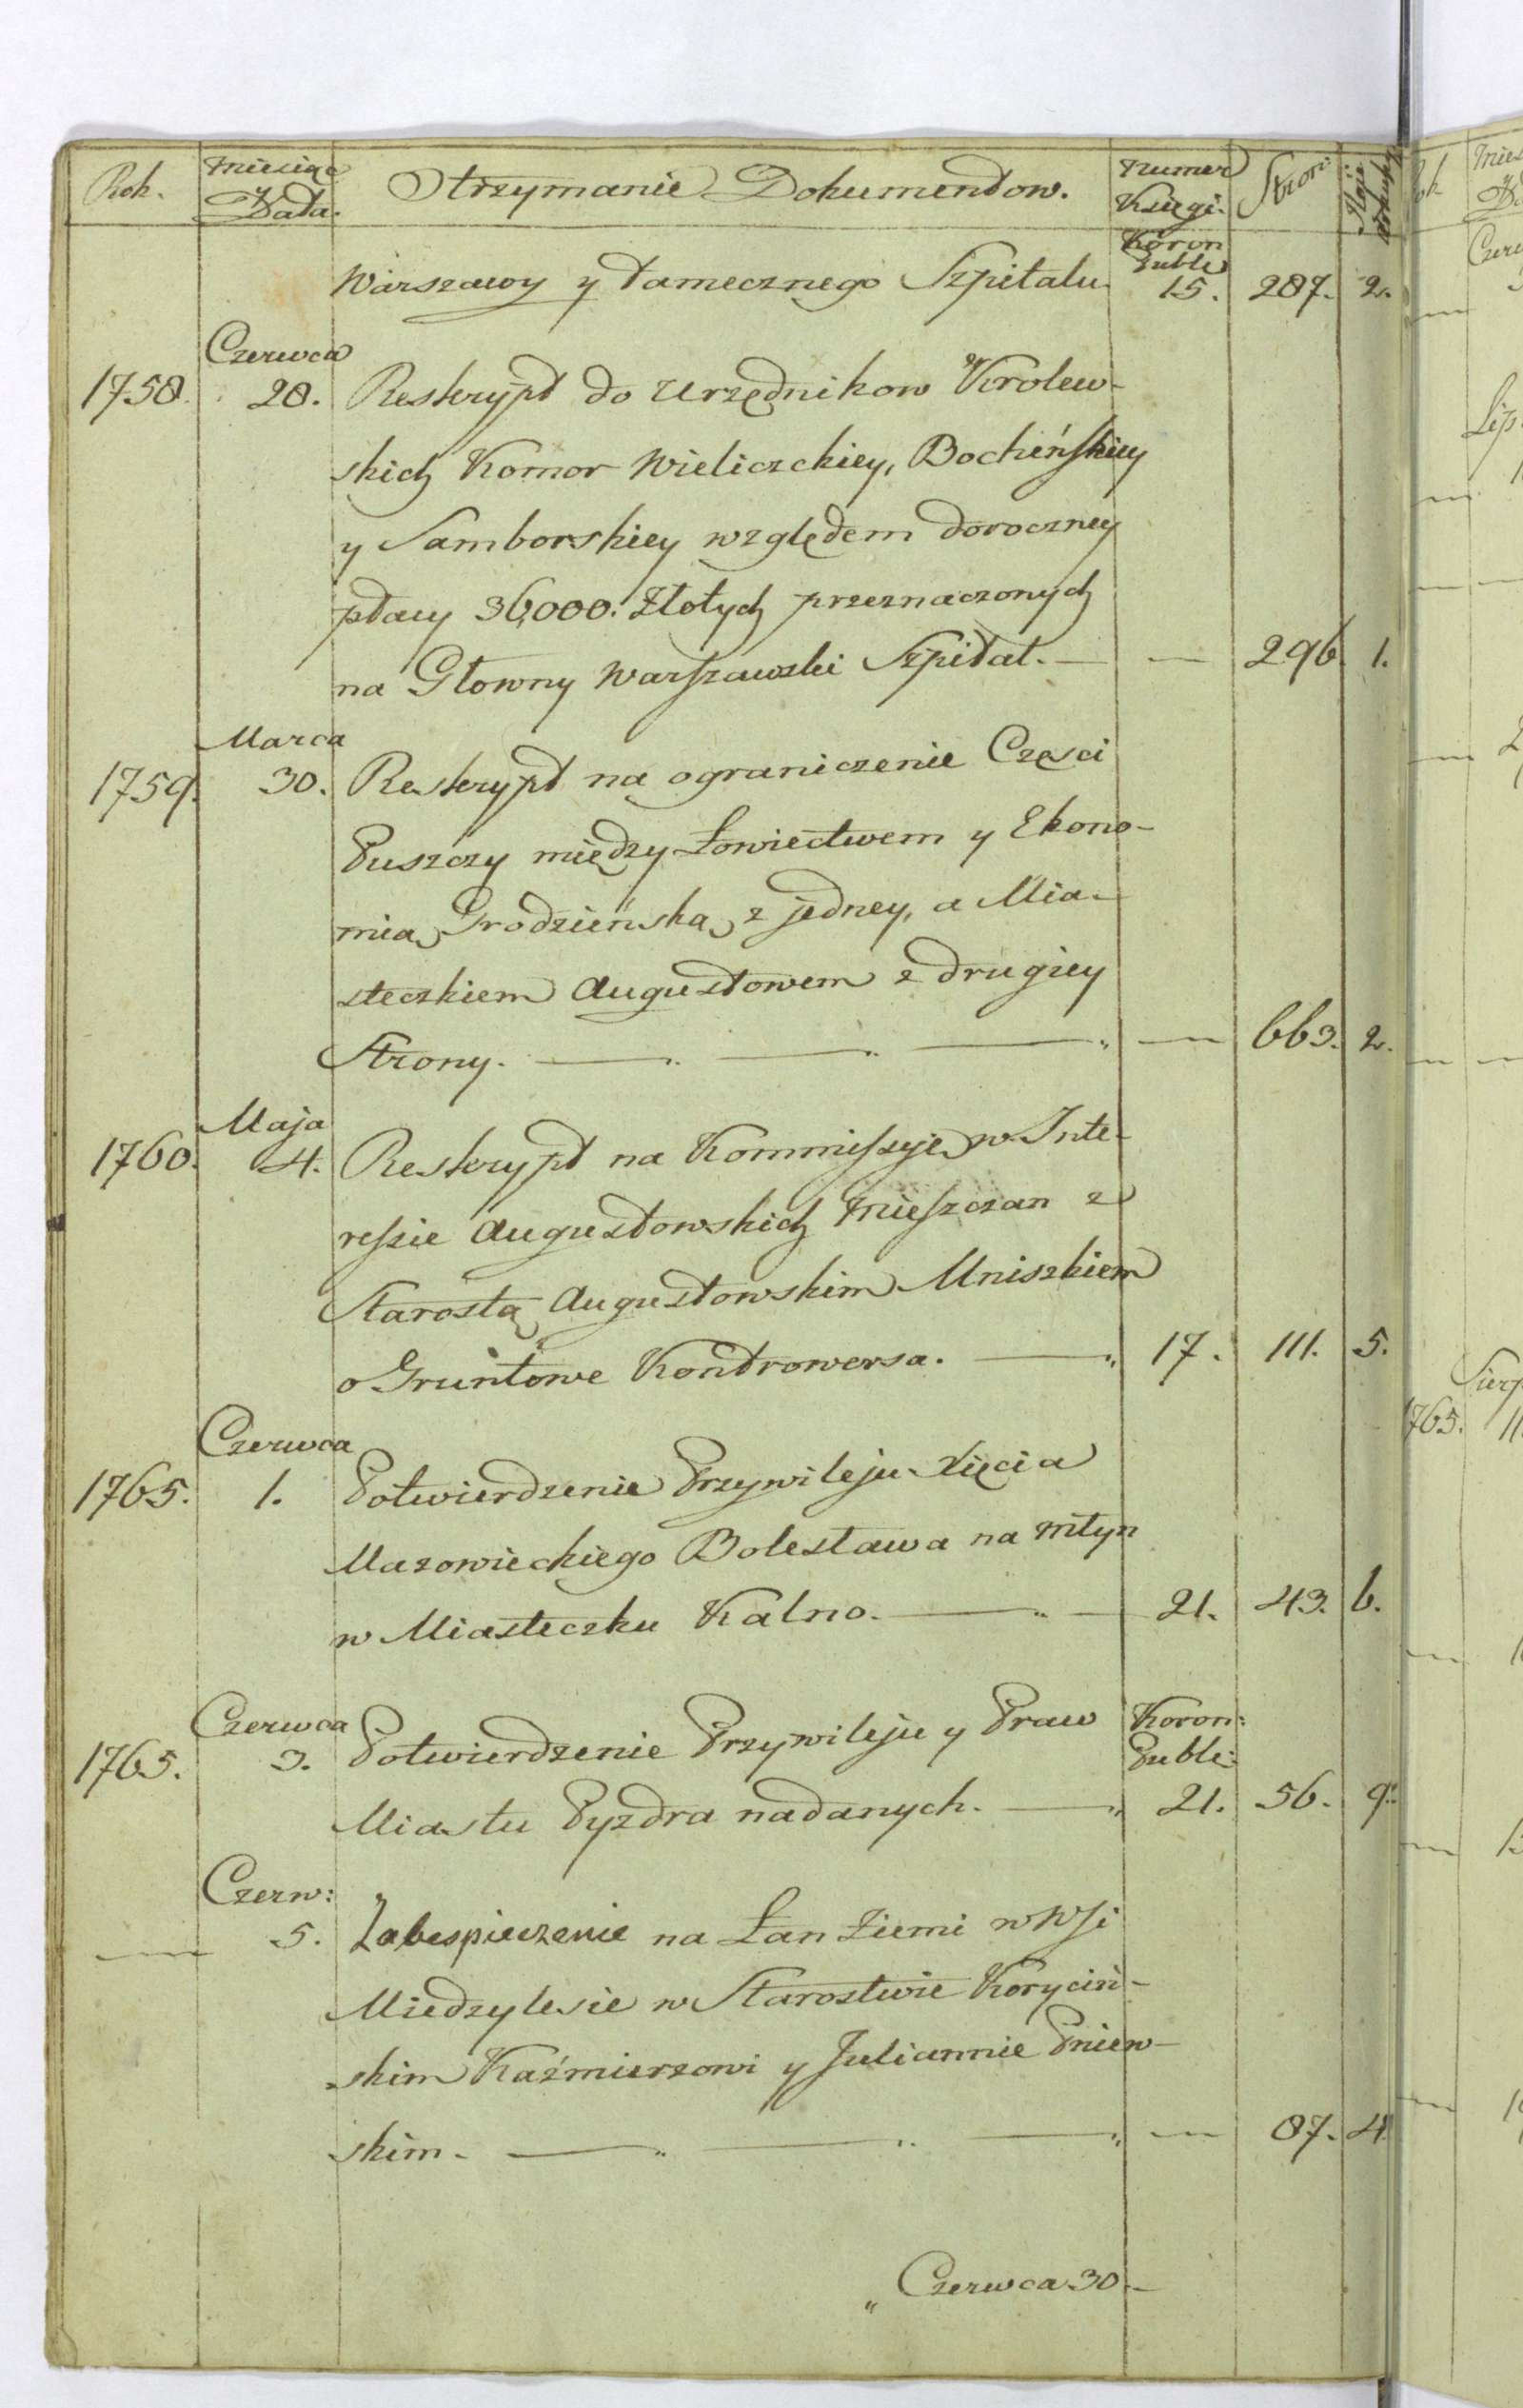 Rok. Miesiąc Data. Otrzymanie Dokumentow. Numer Księgi. Stron:
Warszawy y tamecznego Szpitalu. Koron Publ: 15. 287. 2.
Czerwca
1758. 28. Reskrypt do Urzędnikow Krolew-
skich Komor Wieliczckiey, Bocheńskiey
y Samborskiey względem doroczney
płacy 36,000. Złotych przeznaczonych
na Głowny Warszawski Szpital. — — 296. 1.
Marca
1759. 30. Reskrypt na ograniczenie Częsci
Puszczy między Łowiectwem y Ekono-
mią Grodzieńską z jedney, a Mia-
steczkiem Augustowem z drugiey
Strony. — — — — 663. 2.
Maja
1760. 4. Reskrypt na Kommissyję w Inte-
ressie Augustowskich Mieszczan z
Starostą Augustowskim Mniszkiem
o Gruntowe Kontrowersa. — 17. 111. 5.
Czerwca
1765. 1. Potwierdzenie Przywileju Xięcia
Mazowieckiego Bolesława na Młyn
w Miasteczku Kalno. — — 21. 43. 6.
Czerwca
1765. 3. Potwierdzenie Przywileju y Praw Koron: Publ:
Miastu Pyzdra nadanych. — 21. 56. 9.
Czerw:
— 5. Zabespieczenie na Łan Ziemi w Wsi
Miedzylesie w Starostwie Koryciń-
skim Kaźmierzowi y Juliannie Pniew-
skim. — — — — 87. 4.
Czerwca 30. —